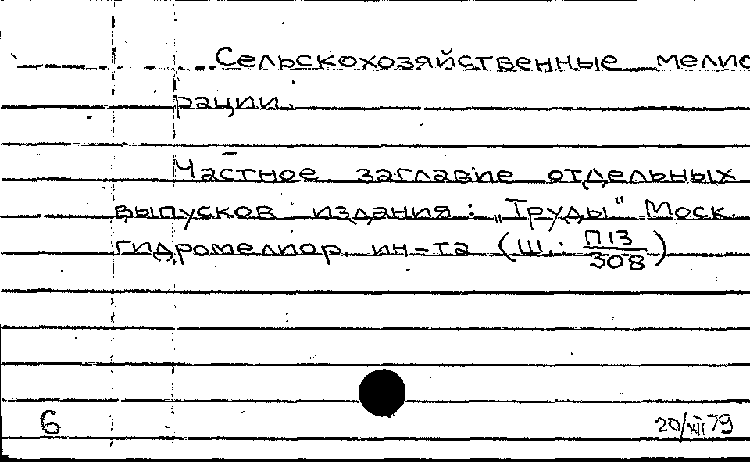 Сельскохозяйственные мелио
рации.
Частное заглавие отдельных
выпусков издания: „Труды" Моск.
гидромелиор. ин-та (Ш.: П13/308)
6 20/XII 79